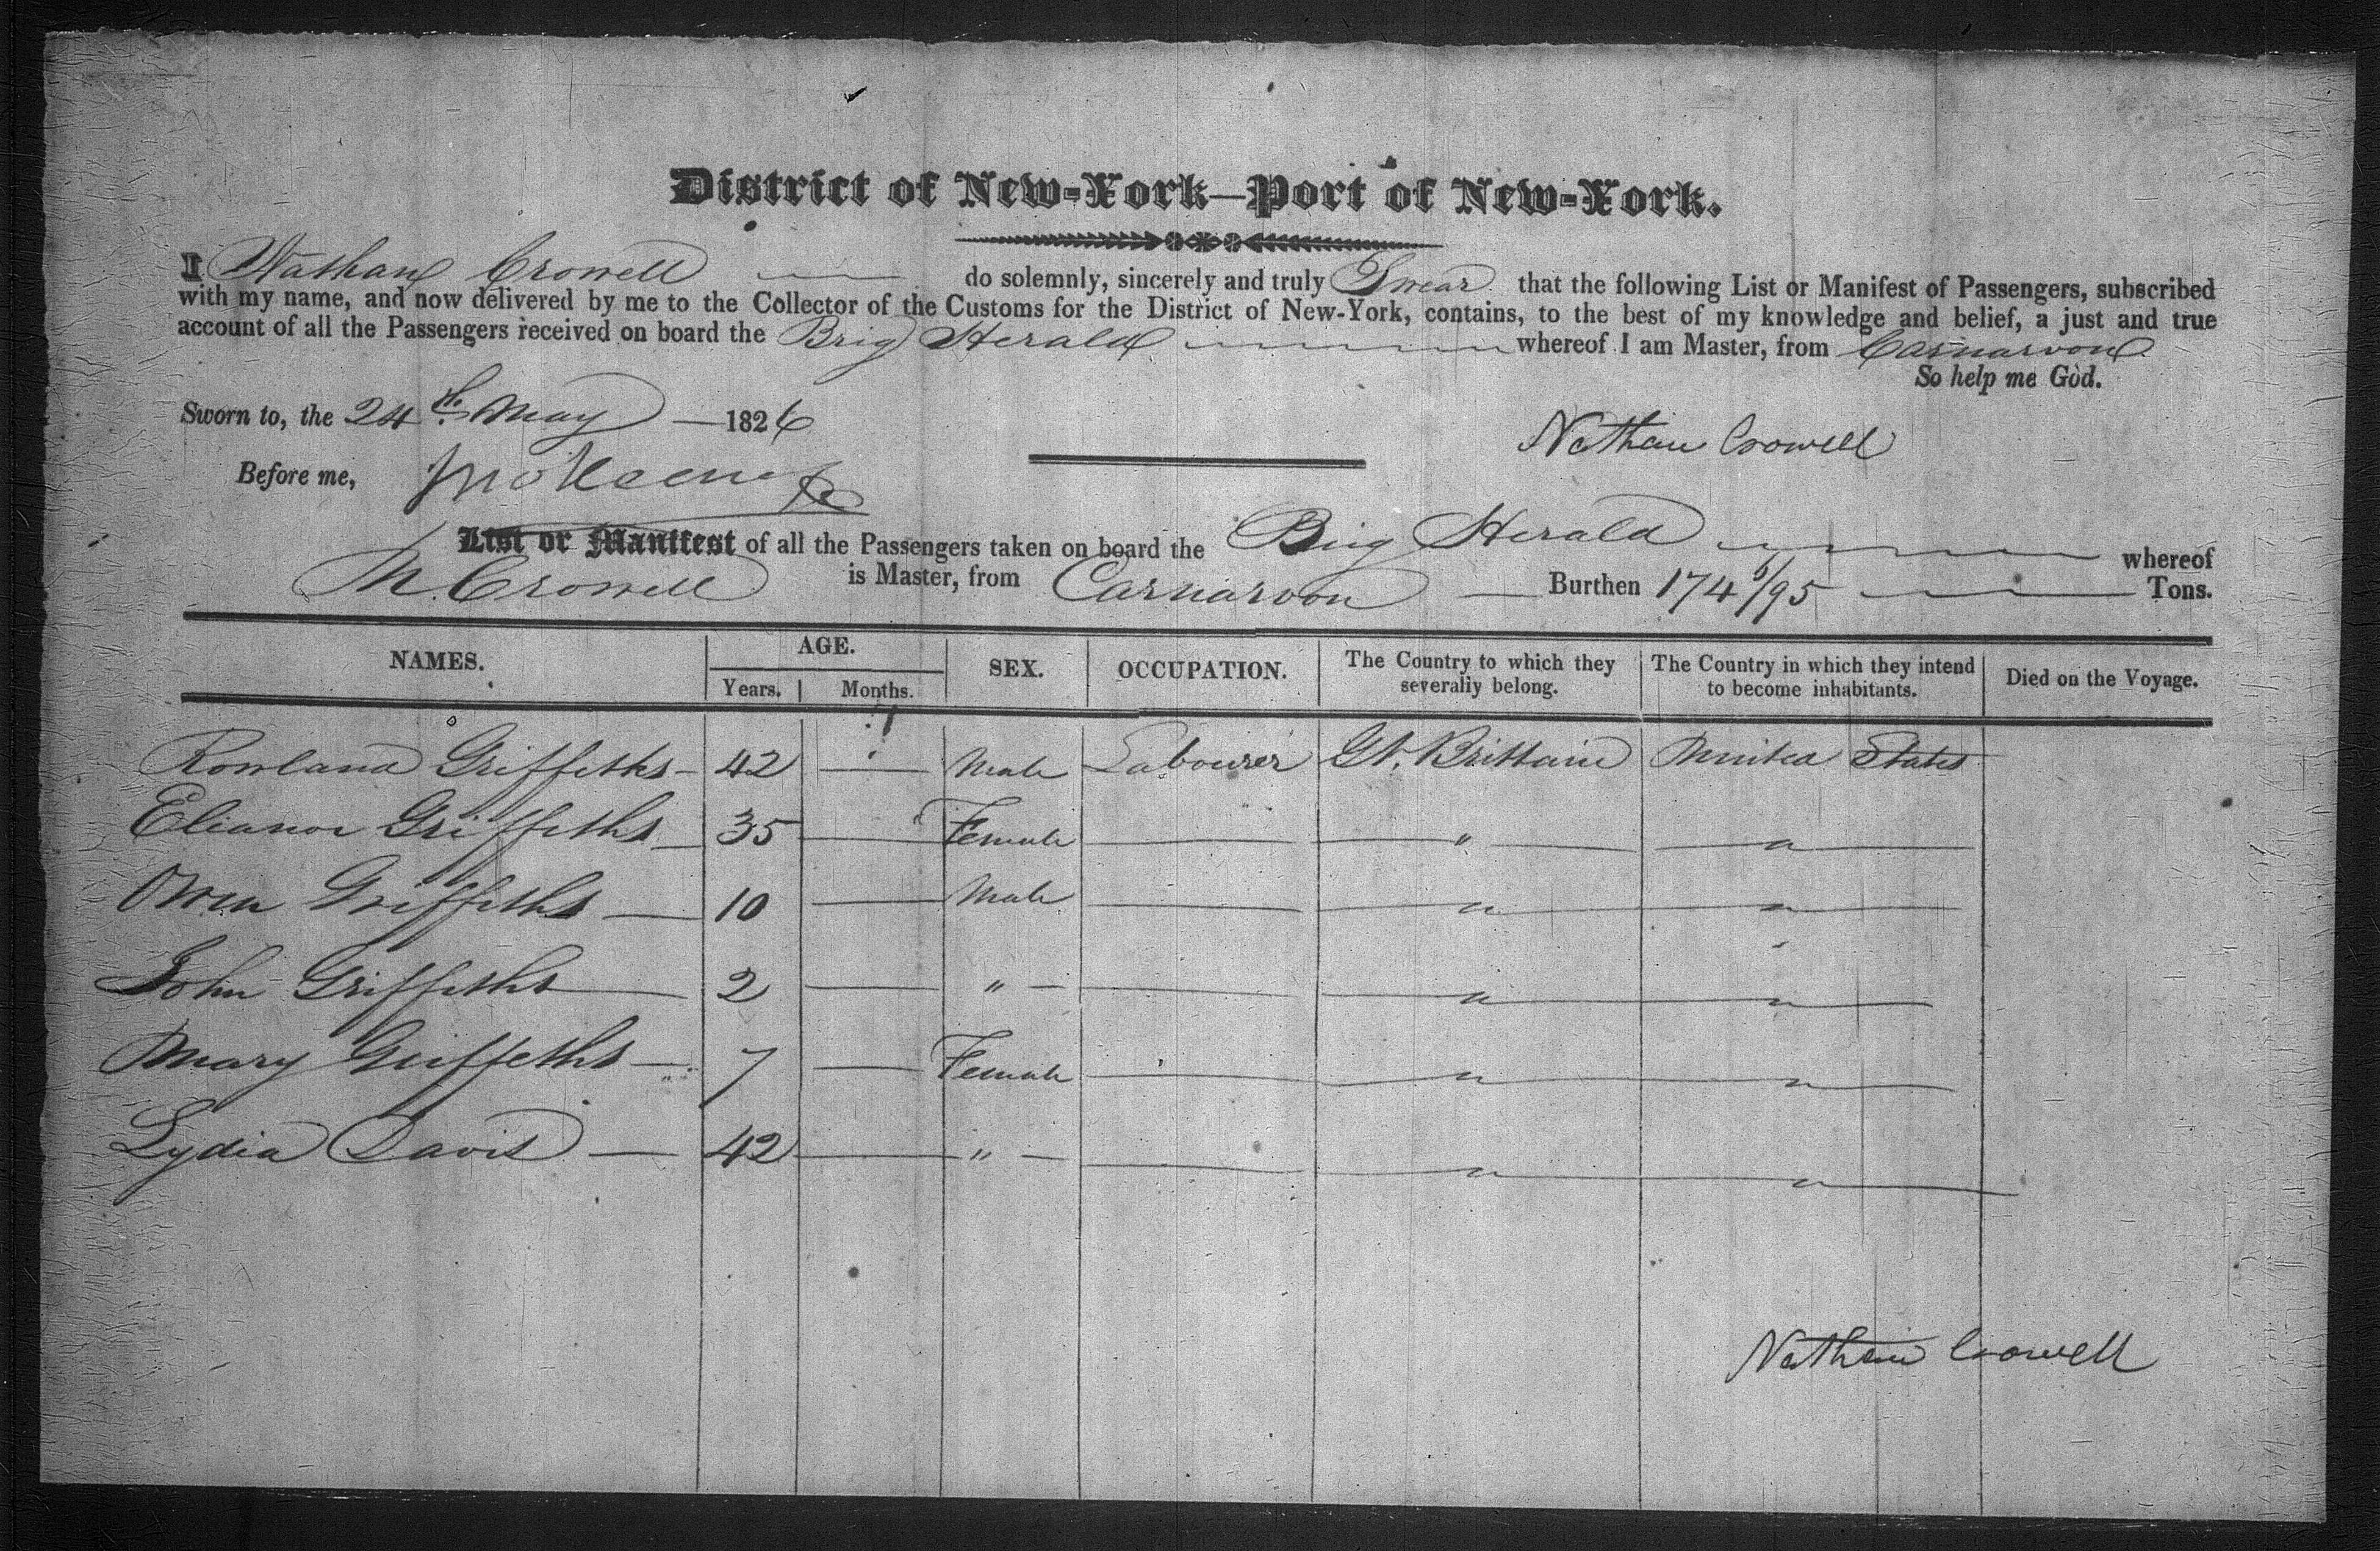 District of New-York—Port of New-York.
I Nathan Crowell do solemnly, sincerely and truly Swear that the following List or Manifest of Passengers, subscribed
with my name, and now delivered by me to the Collector of the Customs for the District of New-York, contains, to the best of my knowledge and belief, a just and true
account of all the Passengers received on board the Brig Herald whereof I am Master, from Carnarvon
So help me God.
Sworn to, the 24th May 1826
Nathan Crowell
Before me,
List or Manifest of all the Passengers taken on board the Brig Herald whereof
N. Crowell is Master, from Carnarvon Burthen 174 /95 Tons.
NAMES. AGE. SEX. OCCUPATION. The Country to which they severally belong. The Country in which they intend to become inhabitants. Died on the Voyage.
Years. Months.
Rowland Griffeths — 42 — Male Labourer Gt. Brittain United States
Elianor Griffeths — 35 — Female — " — " —
Owen Griffeths — 10 — Male — " — " —
John Griffeths — 2 — " — — " — " —
Mary Griffeths — 7 — Female — " — " —
Lydia Davis — 42 — " — — " — " —
Nathan Crowell